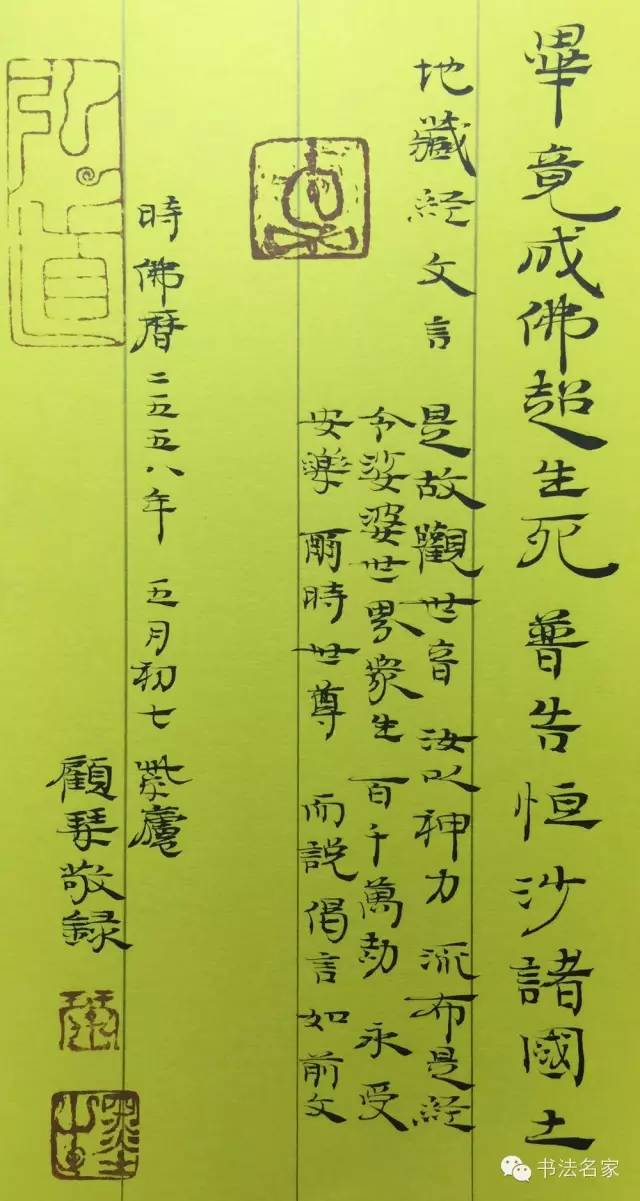 畢竟成佛超生死 普告恒沙諸國土
地藏经文言 是故觀世音 汝以神力 流布是經
令娑婆世界衆生 百千萬劫 永受
安樂 爾時世尊 而説偈言如前文
時佛曆二五五八年 五月初七 紫廬
顧琹敬録
弘道
书法名家